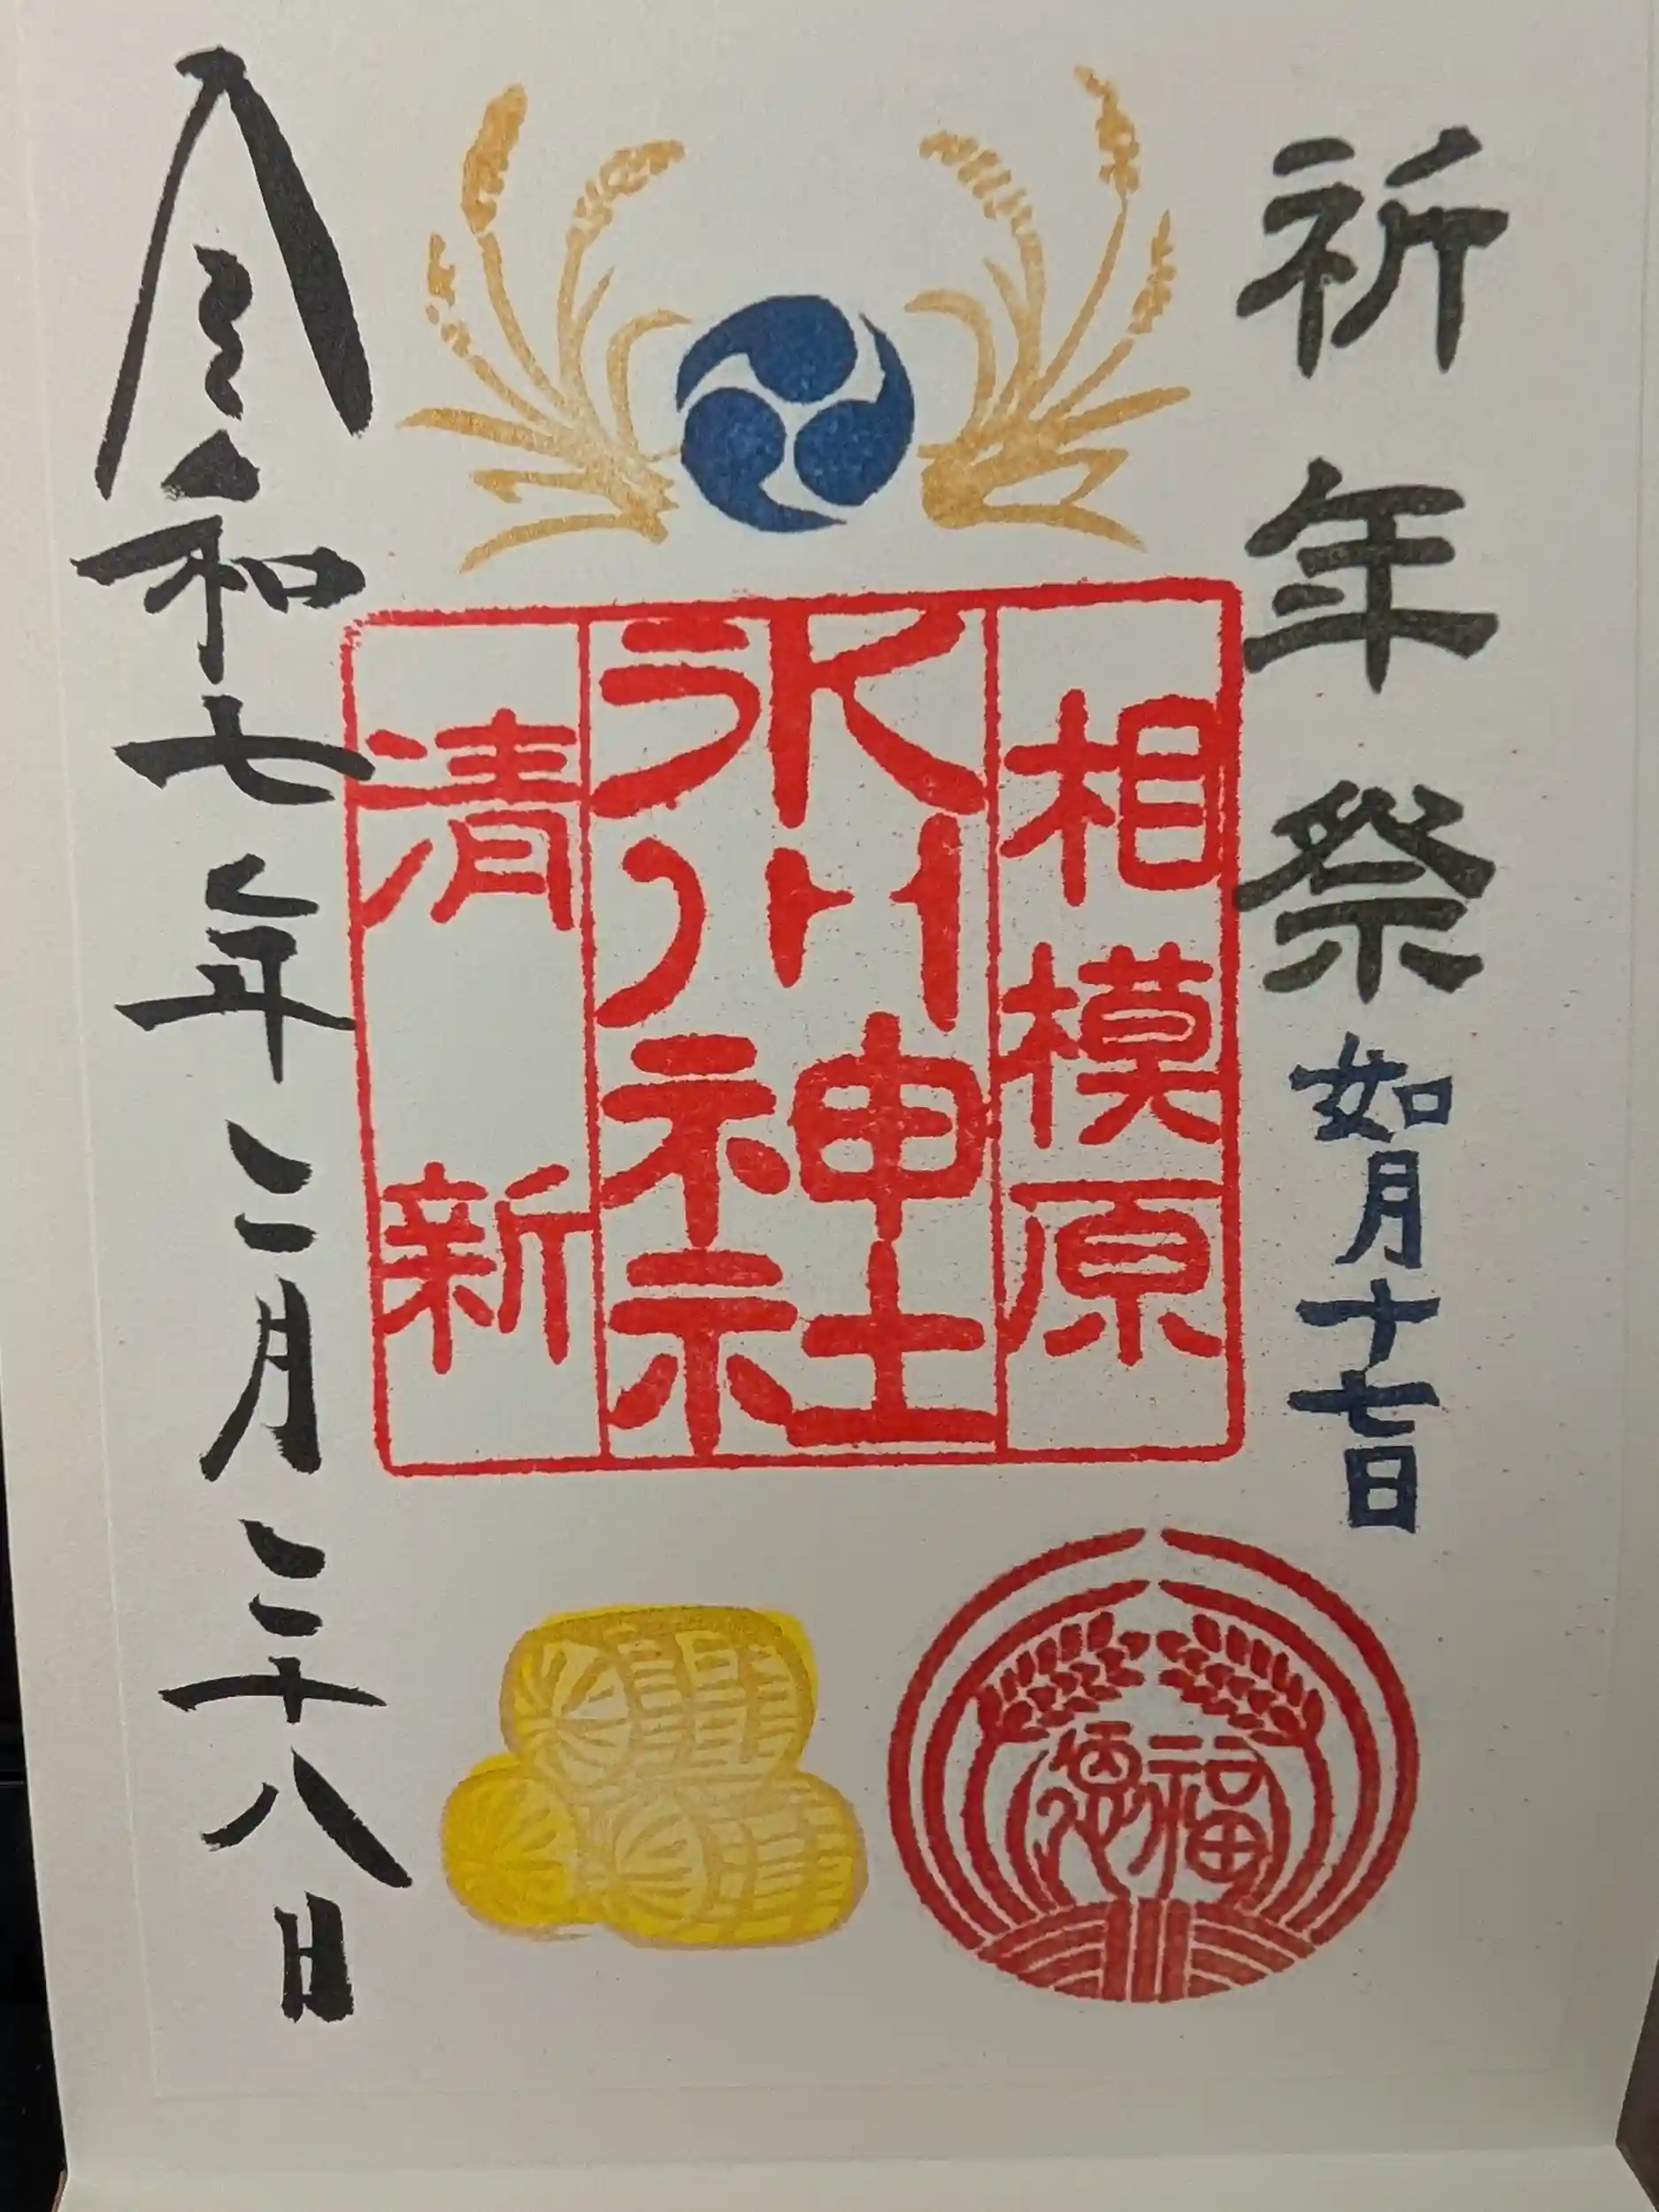 祈年祭
如月十七日
相模原
氷川神社
清新
福
令和七年二月二十八日